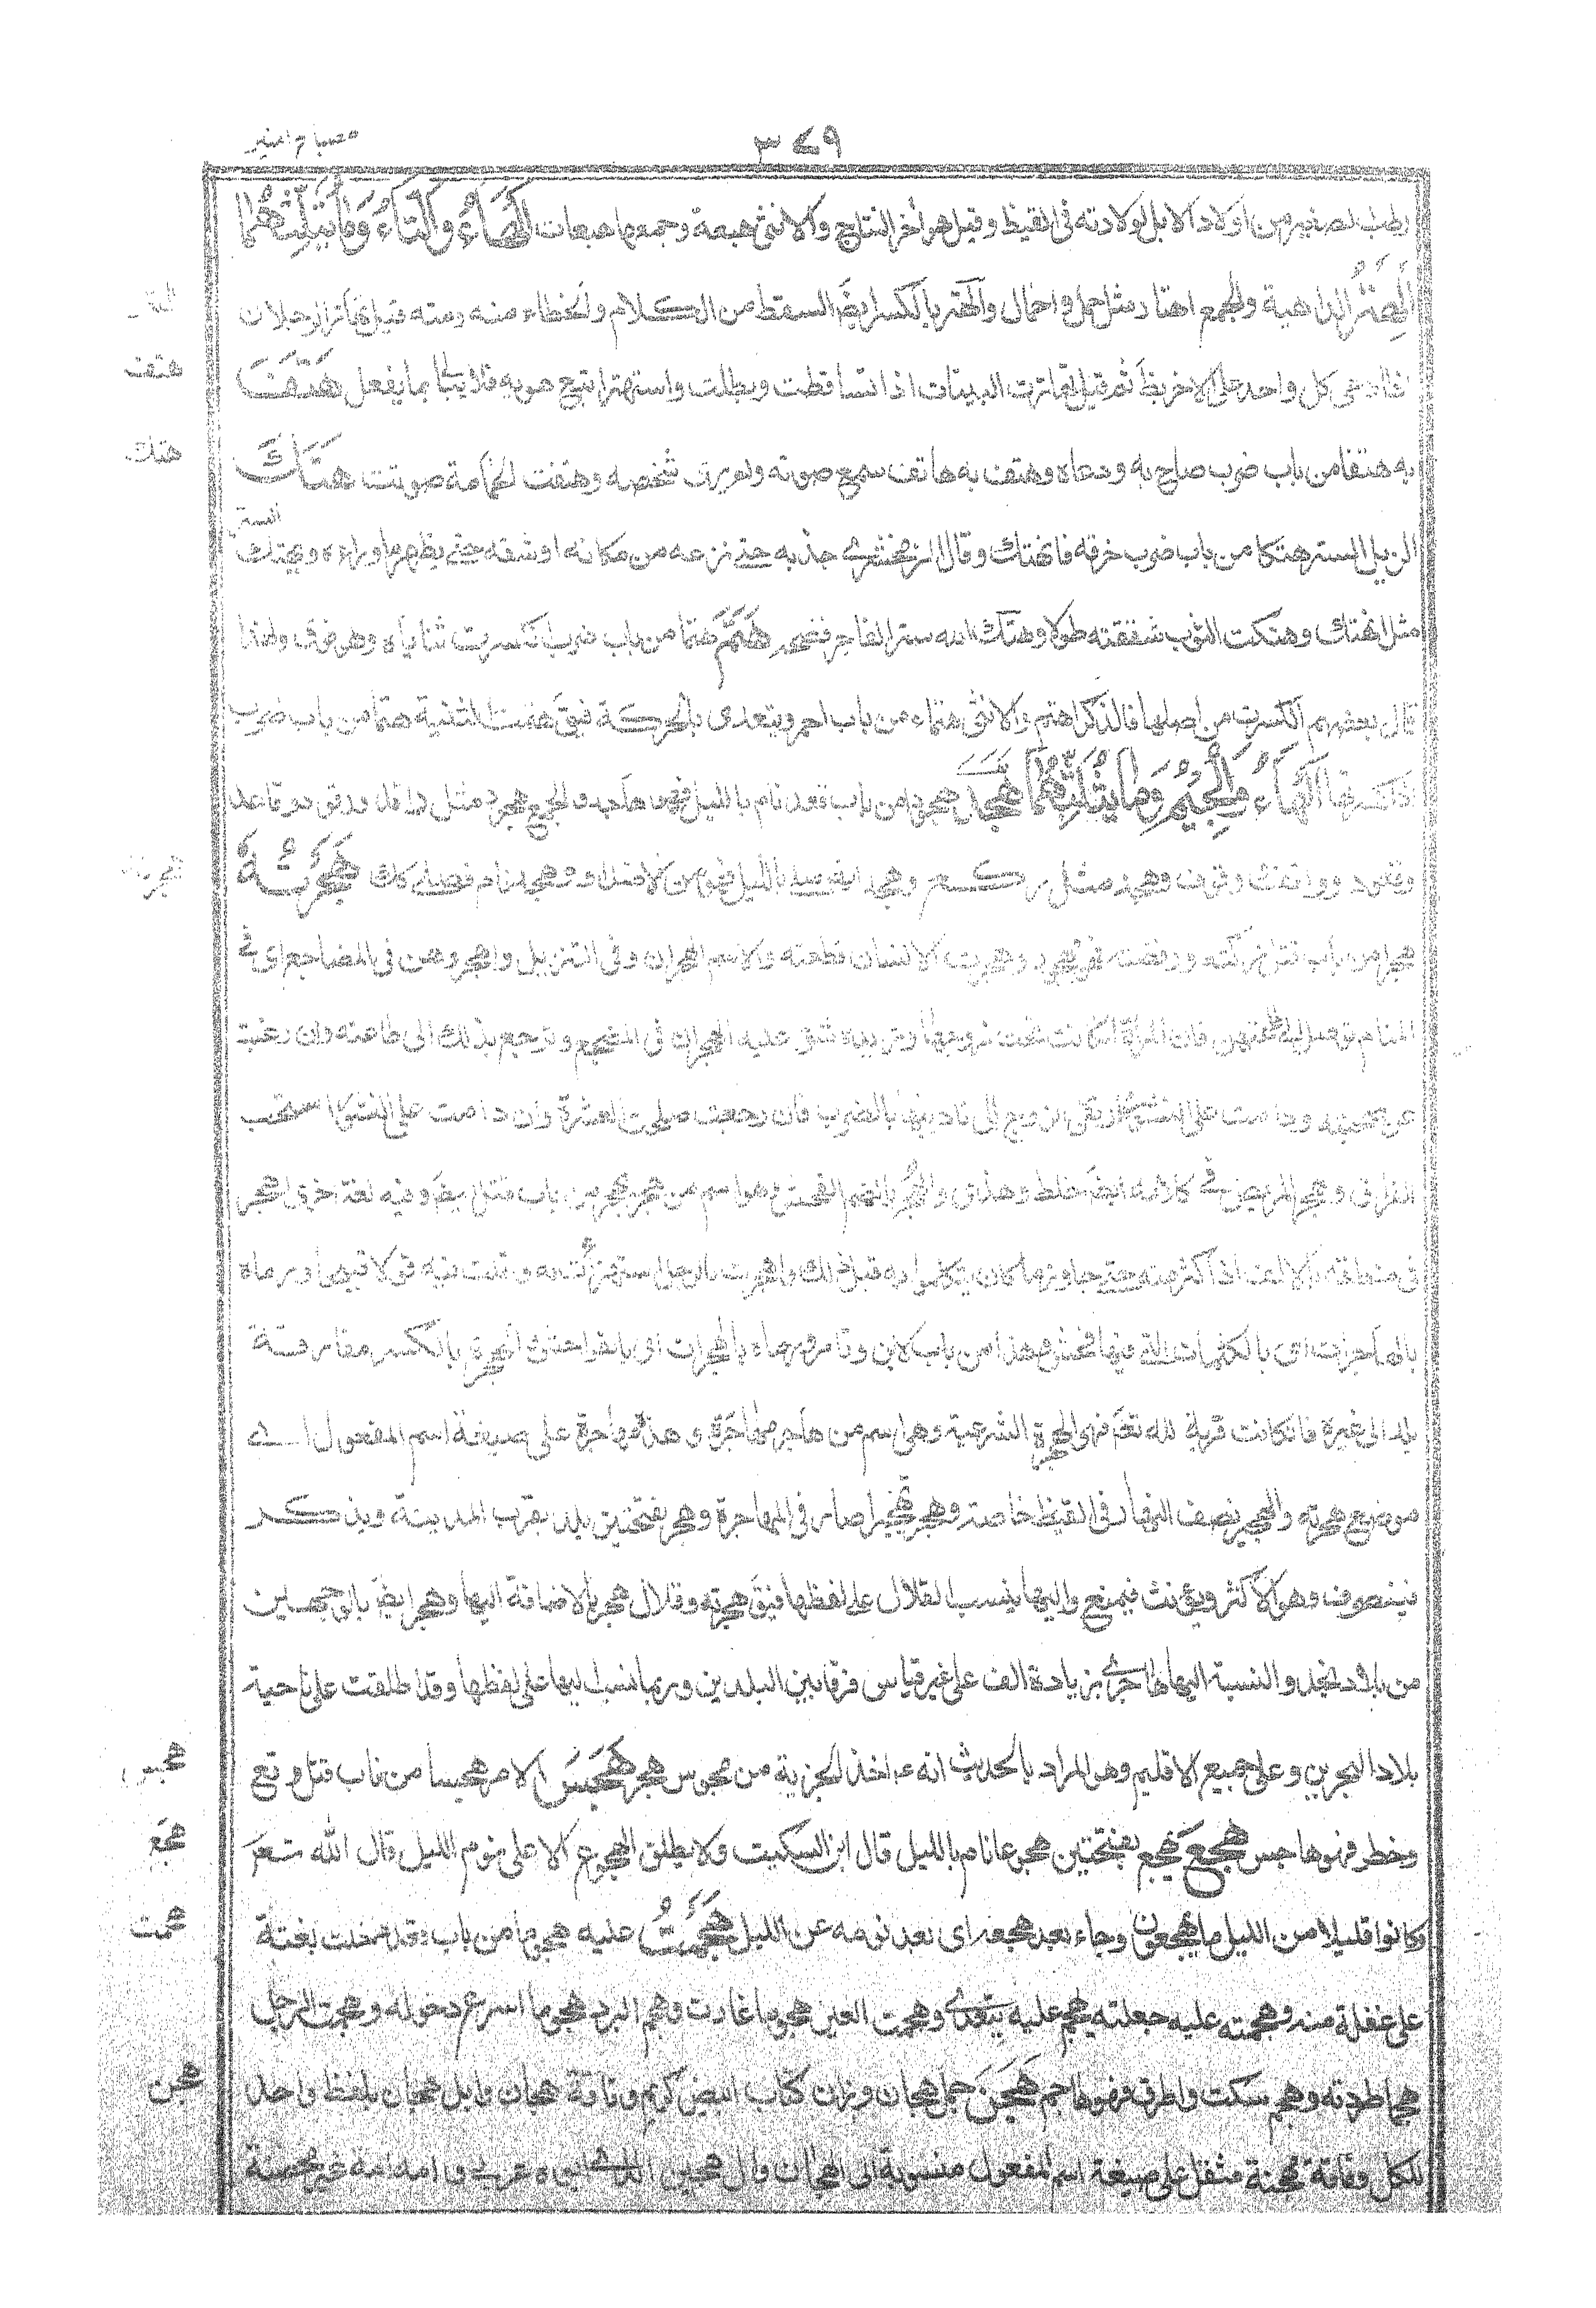 ٣٧٩
مصباح المنير
رطب لصغير من اولاد الابل لولادته فى القيظ وقيل هو آخر النتاج والانثى هبعة وجمعها هبعات الْهَاءُ وَالتَّاءُ وَمَا يَثْلِثُهُمَا
الْهِتْرُ الداهية والجمع اهتار مثل حمل واحمال والهتر بالكسر ايضَ السقط من الكلام والخطاء منه ومنه قيل تهاتر الرجلان
اذا ادعى كل واحد على الاخر ثم قيل تهاترت البينات اذا تساقطت وبطلت واستهتر اتبع هويه فلا يبالى بما يفعل هَتَفَ
هتف
به هتفا من باب ضرب صاح به ودعاه وهتف به هاتف سمع صوته ولم ير شخصه وهتفت الحمامة صوتت هَتَكَ
هتك
الستر هتكا من باب ضرب خرقه فانهتك وقال الزمخشرى جذبه حتى نزعه من مكانه او شقه حتى يظهر ما وراءه وتهتك الستر
مثل انهتك وهتكت الثوب شققته طولا وهتك الله ستر الفاجر فضحه هَتَمَ هتما من باب ضرب انكسرت ثناياه وهو فوق ولهذا
قال بعضهم انكسرت من اصلها فالذكر اهتم والانثى هتماء من باب احمر ويتعدى بالحركة فيقَ هتمت الثنية هتما من باب ضرب
اذا كسرتها الْهَاءُ وَالْجِيْمُ وَمَا يَثْلِثُهُمَا هَجَدَ هجودا من باب قعد نام بالليل فهو هاجد والجمع هجود مثل راقد ورقود وقاعد
وقعود وهجد مثل ركع وهجد ايضا صلى بالليل فهو من الاضداد وتهجد نام وصلى كذلك هَجَرْتُهُ
هجرته
هجرا من باب قتل تركته ورفضته فهو مهجور وهجرت الانسان قطعته والاسم الهجران وفى التنزيل واهجروهن فى المضاجع اى فى
المنام توصلا الى طاعتهن فان المرأة كانت تحب زوجها شق عليها الهجران فى المضجع وترجع بذلك الى طاعته وان رغبت
عن صحبته ودامت على النشوز ارتقى الزوج الى تأديبها بالضرب فان رجعت صلحت العشرة وان دامت على النشوز استحب
الفراق وهجر المريض فى كلامه ايضَ خلط وهذى والهجر بالضم الفحش وهو اسم من هجر يهجر من باب قتل ايضَ وفيه لغة اخرى اهجر
فى منطقه بالالف اذا اكثر منه حتى جاوز ما كان يتكلم به قبل ذلك واهجرت بالرجل استهزأت به وقلت فيه قولا قبيحا ورماه
بالهاجرات اى بالكلمات التى فيها فحش وهذا من باب لابن وتامر ورماه بالمهجرات اى بالفواحش والهجرة بالكسر مفارقة
بلد الى غيره فان كانت قربة لله تعَ فهى الهجرة الشرعية وهى اسم من هاجر مهاجرة وهذه مهاجرة على صيغة اسم المفعول اى
موضع هجرته والهجير نصف النهار فى القيظ خاصة وهجر تهجيرا صار فى الهاجرة وهجر بفتحتين بلد بقرب المدينة ويذكر
فينصرف وهو الاكثر ويؤنث فيمنع واليها ينسب القلال على لفظها فيقَ هجرية وقلال هجر بالاضافة اليها وهجر ايضَ
من بلاد نجد والنسبة اليها هاجرى بزيادة الف على غير قياس فرقا بين البلدين وربما نسب اليها على لفظها وقد اطلقت على ناحية
بلاد البحرين وعلى جميع الاقليم وهو المراد بالحديث انه عم اخذ الجزية من مجوس هجر هَجَسَ الامر هجسا من باب قتل وقع
هجس
وخطر فهو هاجس هَجَعَ يهجع بفتحتين هجوعا نام بالليل قال ابن السكيت ولا يطلق الهجوع الا على نوم الليل قال الله تعَ
هجع
وكانوا قليلا من الليل ما يهجعون وجاء بعد هجعة اى بعد نومه من الليل هَجَمْتُ عليه هجوما من باب قعد دخلت بغتة
هجمت
على غفلة منه وهجمته عليه جعلته يهجم عليه يتعدى وهجمت العين هجوما غارت وهجم البرد هجوما اسرع دخوله وهجمت الرجل
هجما طردته وهجم سكت واطرق فهو هاجم هَجَنَ جمل هجان وزان كتاب ابيض كريم وناقة هجان وابل هجان بلفظ واحد
هجن
للكل وناقة مهجنة مثقل على صيغة اسم المفعول منسوبة الى الهجان والهجين الذى ابوه عربى وامه امة غير محصنة